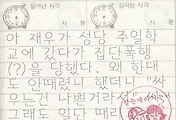 일어난 시각 잠자는 시각
시 분 시 분
아 재우가 성당 주일학
교에 갔다가 집단폭행
(?)을 당했다. 왜 하내
도 안때렸니 했더니 "싸
우는건 나쁜거라서"
그래도 일단 때리